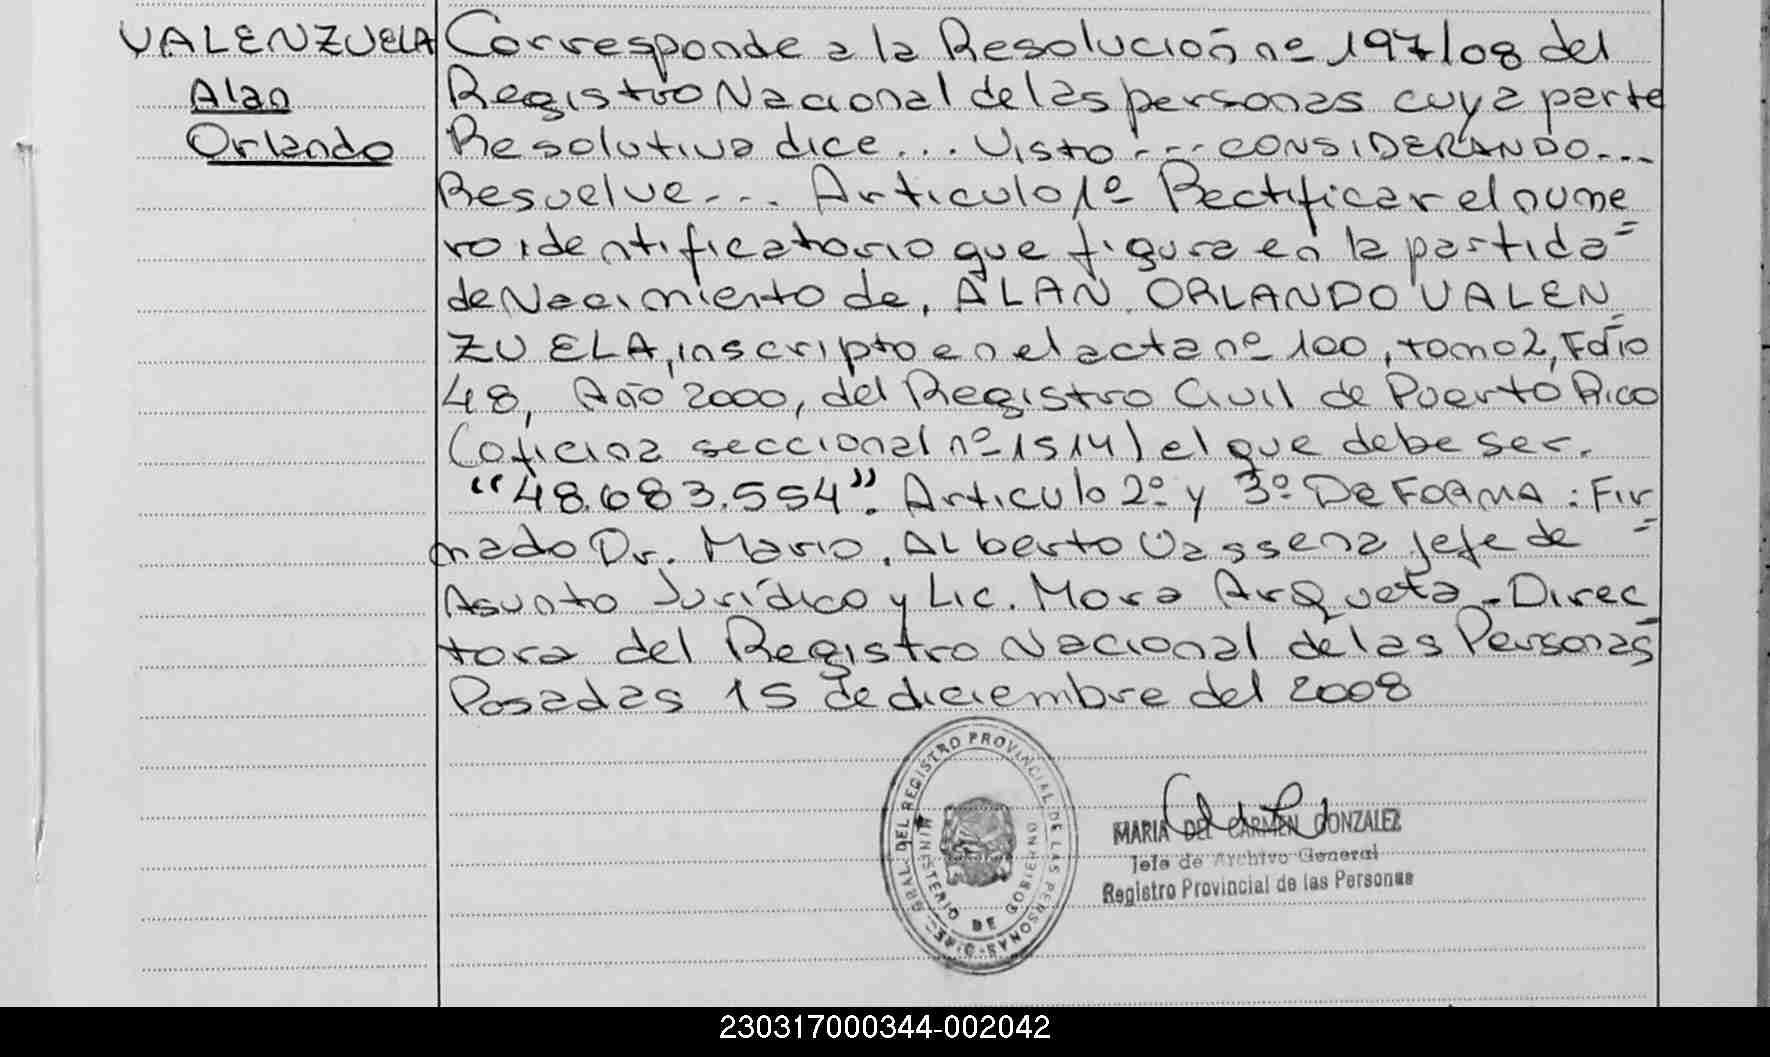 VALENZUELA
Alan
Orlando
Corresponde a la Resolución nº 197/08 del
Registro Nacional de las personas cuya parte
Resolutiva dice... Visto... CONSIDERANDO...
Resuelve... Articulo 1º Rectificar el nume
ro identificatorio que figura en la partida=
de Nacimiento de, ALAN ORLANDO VALEN=
ZUELA, inscripto en el acta nº 100, tomo 2, Folio
48, Año 2000, del Registro Civil de Puerto Rico
(oficina seccional nº 1514) el que debe ser.
"48.683.554". Articulo 2º y 3º DE FORMA: Fir=
mado Dr. Mario. ALberto Vassena jefe de
Asunto Jurídico y Lic. Mora ArQueta - Direc
tora del Registro Nacional de las Personas
Posadas 15 de diciembre del 2008
GRAL. DEL REGISTRO PROVINCIAL DE LAS PERSONAS
MINISTERIO DE GOBIERNO
MARIA DEL CARMEN GONZALEZ
Jefe de Archivo General
Registro Provincial de las Personas
230317000344-002042